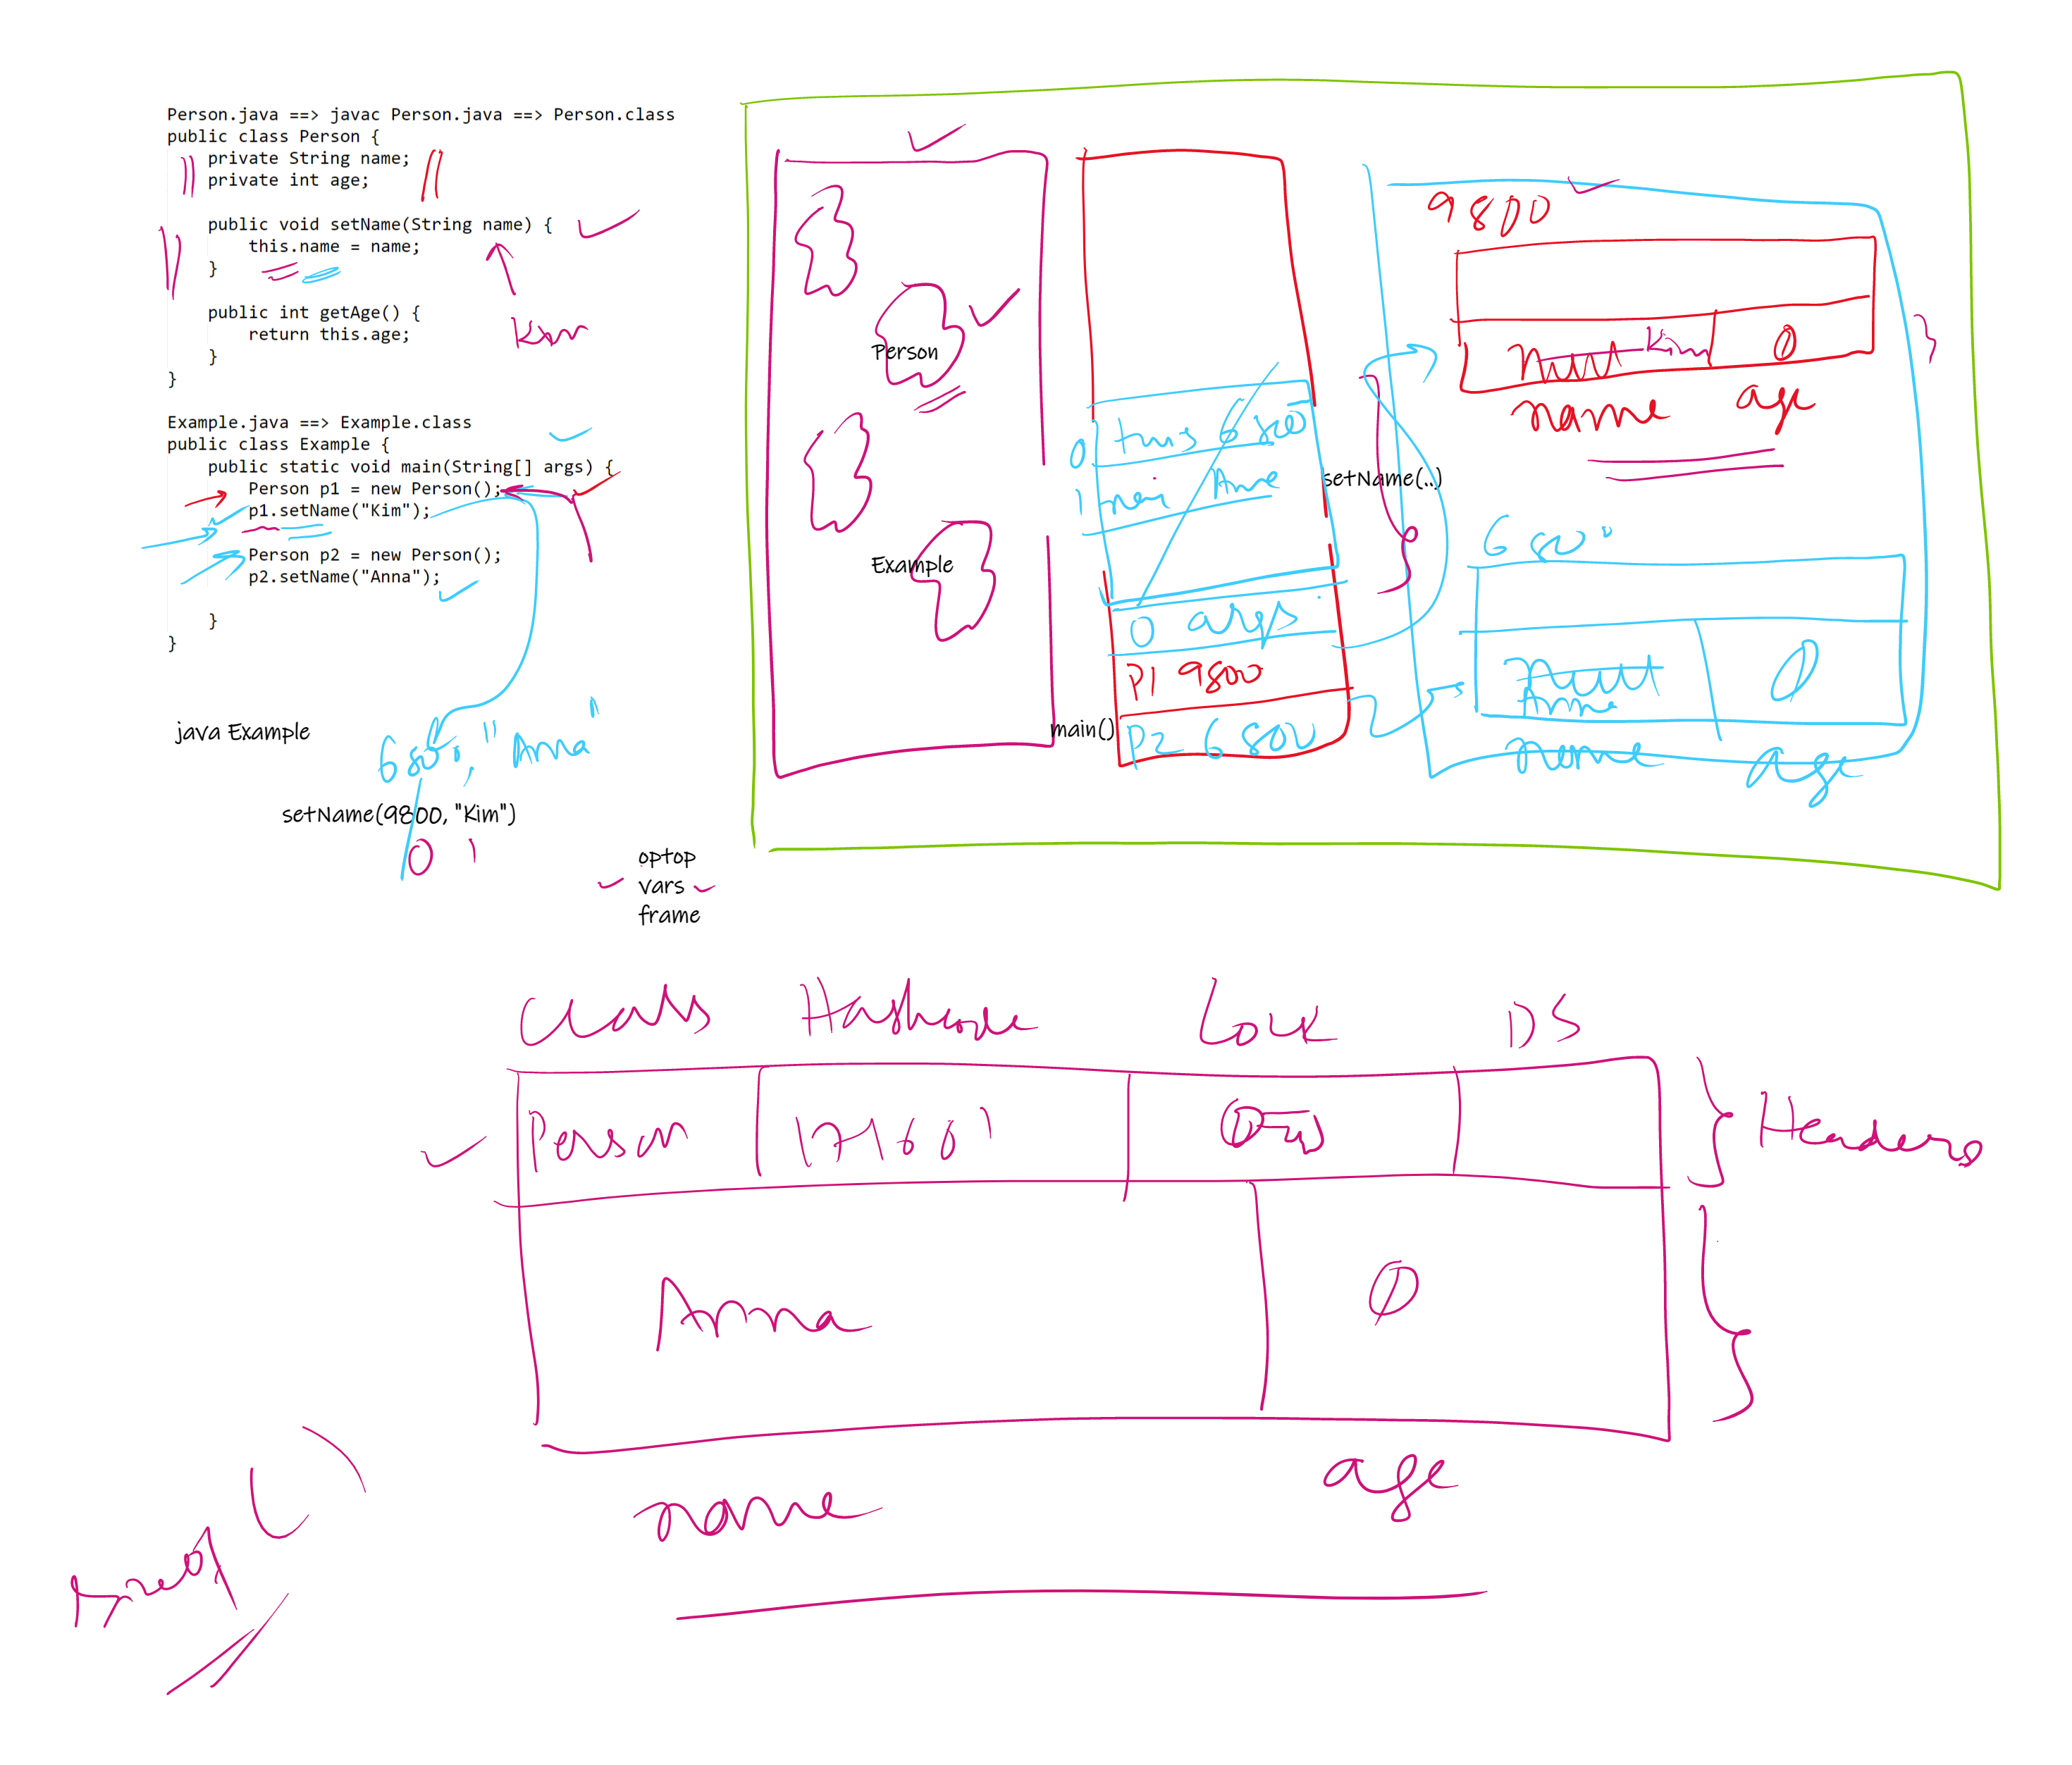 Person.java ==> javac Person.java ==> Person.class
public class Person {
private String name;
private int age;
public void setName(String name) {
this.name = name;
}
public int getAge() {
return this.age;
}
}
Kim
Example.java ==> Example.class
public class Example {
public static void main(String[] args) {
Person p1 = new Person();
p1.setName("Kim");
Person p2 = new Person();
p2.setName("Anna");
}
}
java Example
6800, "Anna"
setName(9800, "Kim")
0 1
optop
vars
frame
Person
Example
0 this 6800
1 Anna
setName(..)
0 args
P1 9800
main()
P2 6800
9800
null Kim 0
name age
6800
null
Anna 0
name age
Class Hashcode Lock DS
Person 0
Headers
Anna 0
name age